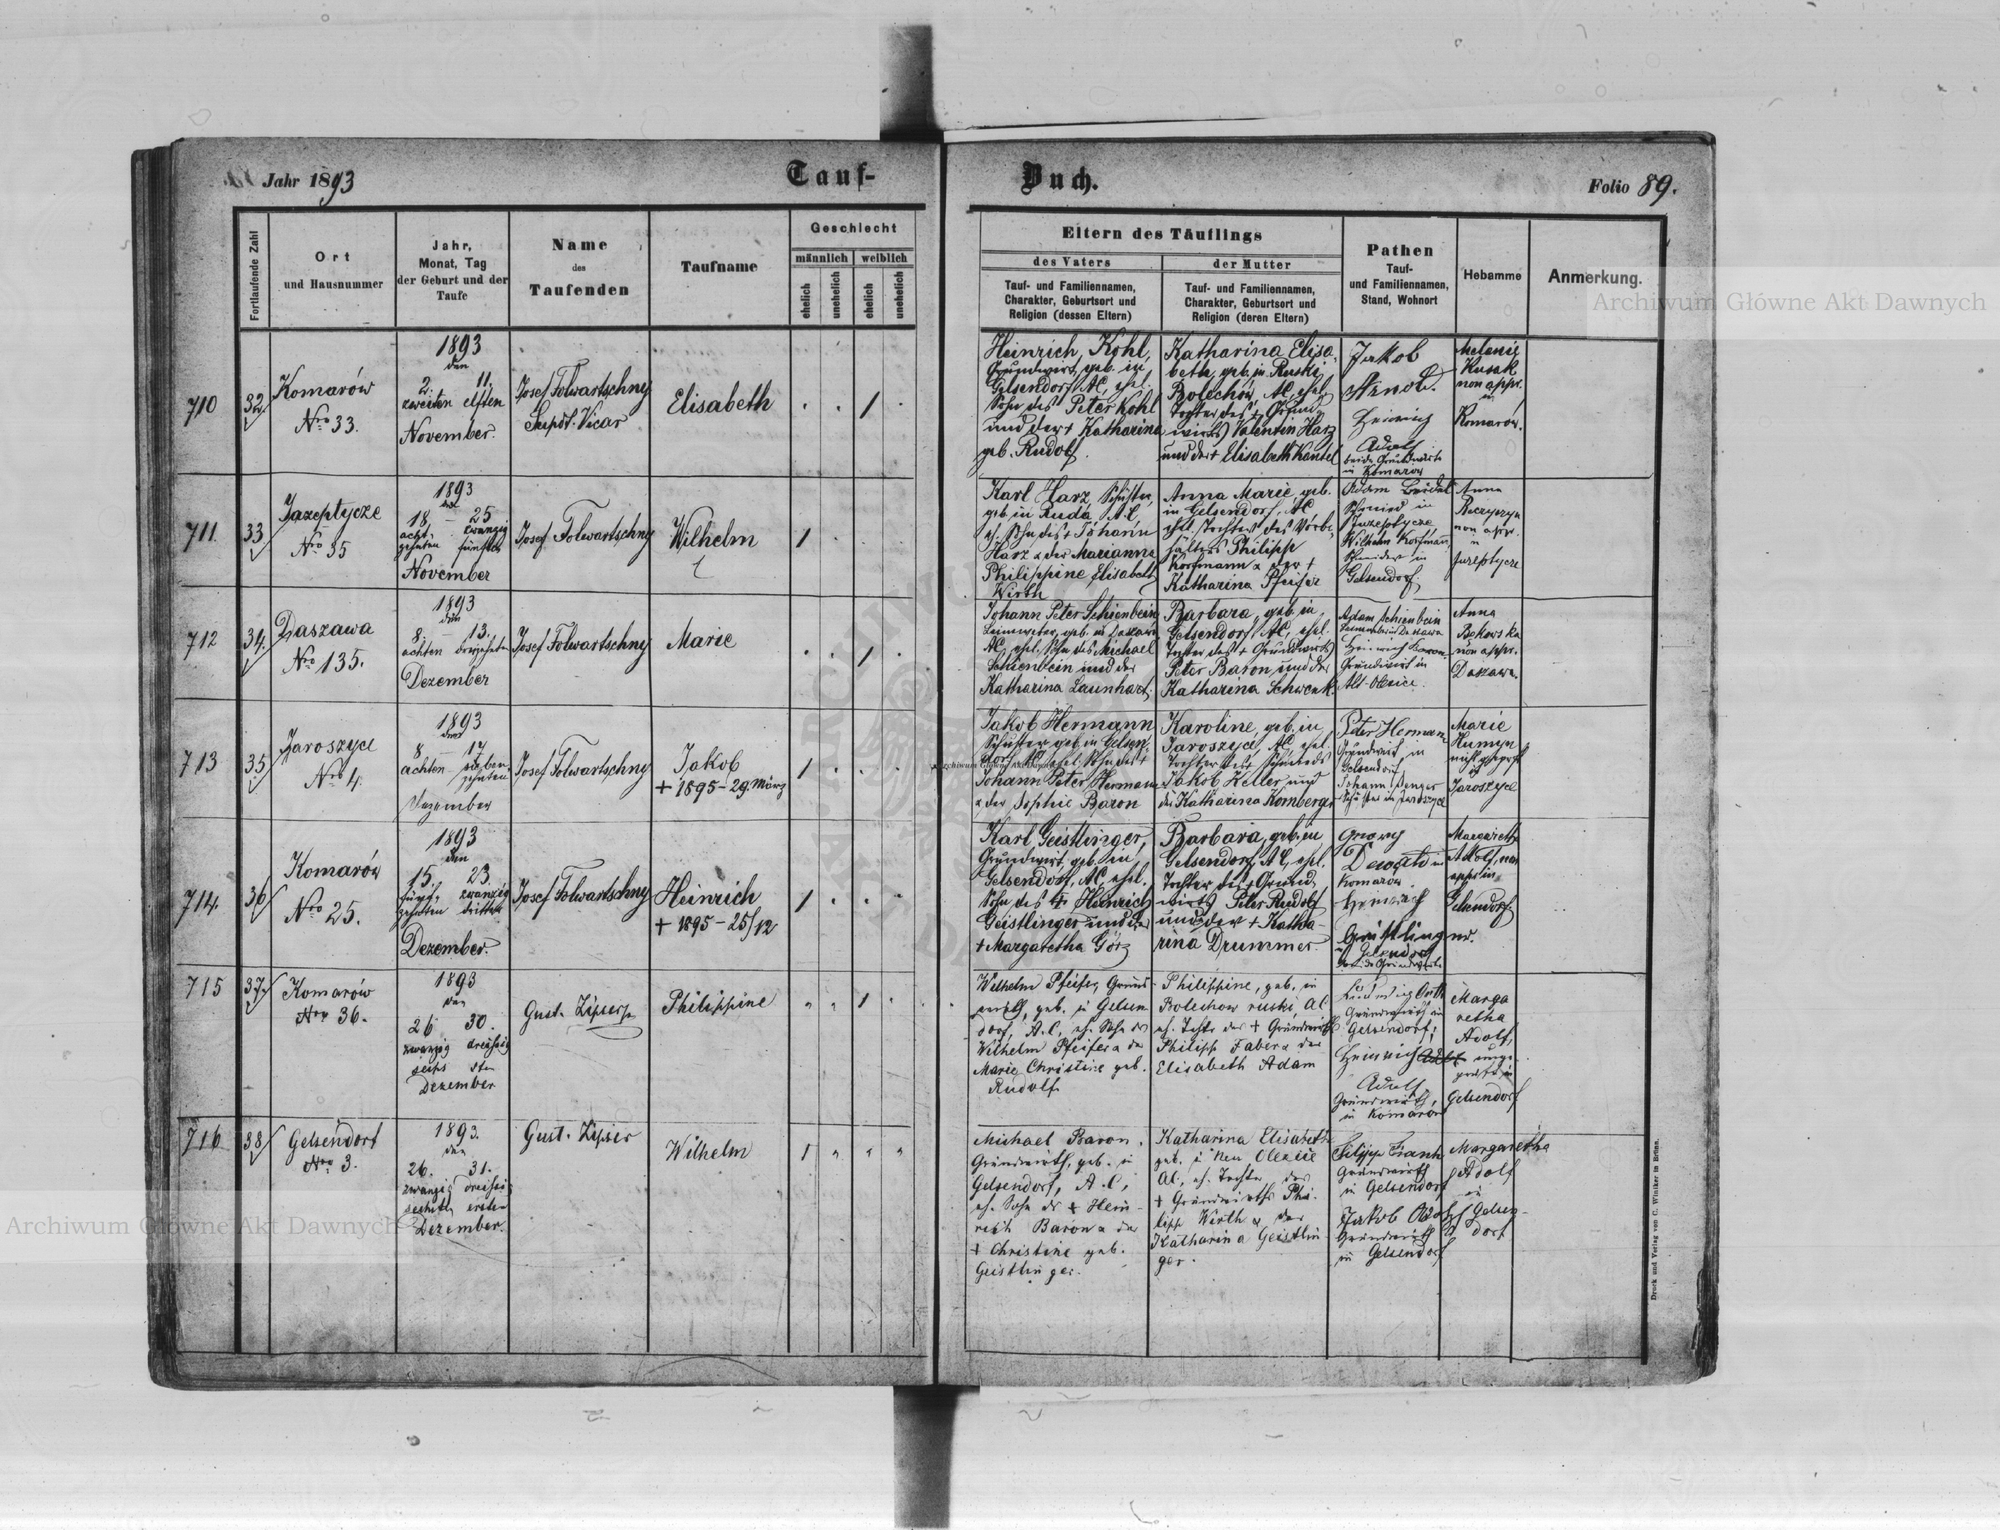 Jahr 1893
Tauf-
Buch.
Folio 89.
Fortlaufende Zahl
Ort
und Hausnummer
Jahr,
Monat, Tag
der Geburt und der
Taufe
Name
des
Taufenden
Taufname
Geschlecht
männlich
weiblich
ehelich
unehelich
ehelich
unehelich
Eltern des Täuflings
des Vaters
der Mutter
Tauf- und Familiennamen,
Charakter, Geburtsort und
Religion (dessen Eltern)
Tauf- und Familiennamen,
Charakter, Geburtsort und
Religion (deren Eltern)
Pathen
Tauf-
und Familiennamen,
Stand, Wohnort
Hebamme
Anmerkung.
710
32
Komarów
Nro 33.
1893
den
2. 11.
zweiten elften
November.
Josef Folwartschny
Vicar
Elisabeth
Heinrich Kohl,
Grundwirt, geb. in
Gelsendorf, AC, ehel.
Sohn des Peter Kohl
und der + Katharina
geb. Rudolf
Katharina Elisa-
beth, geb. in Ruski
Bolechów, AC, ehel.
Tochter des + Grund-
wirts Valentin Harz
und der + Elisabeth
Jakob
Heinrich
Adolf
beide Grundwirte
in Komarow
Melanie
Kusak
non appr.
in
Komarów.
711
33
Jazeptycze
Nro 35
1893
den
18. – 25
acht- zwanzig
zehnten fünften
November
Josef Folwartschny
Wilhelm
Karl Harz, Schuster,
geb. in Ruda, AC,
eh. Sohn des + Johann
Harz u. der Marianna
Philippine Elisabeth
Wirth
Anna Marie, geb.
in Gelsendorf, AC
ehel. Tochter des
Philipp
Korfmann u. der +
Katharina Pfeifer
Adam
Schmied in
Jazeptycze
Wilhelm Korfmann,
in
Gelsendorf.
Anna
non appr.
in
Jazeptycze
712
34
Daszawa
Nro 135.
1893
den
8. – 13.
achten dreizehnten
Dezember
Josef Folwartschny
Marie
Johann Peter Schienbein
geb. in Daszawa
AC, ehel. Sohn des Michael
Schienbein und der
Katharina Launhart.
Barbara, geb. in
Gelsendorf, AC, ehel.
Tochter des + Grundwirts
Peter Baron und der
Katharina Schwenk.
Adam Schienbein
in Daszawa
Heinrich Baron
Grundwirt in
Alt-Olexice.
Anna
Bekerska
non appr.
Daszawa.
713
35
Jaroszyce
Nro 4.
1893
den
8 – 17
achten sieben-
zehnten
Dezember
Josef Folwartschny
Jakob
+ 1895 – 29. März
Jakob Hermann
Schuster geb. in Gelsen-
dorf, AC, ehel. Sohn des +
Johann Peter Hermann
u. der Sophie Baron
Karoline, geb. in
Jaroszyce, AC, ehel.
Tochter des
Jakob Keller und
der Katharina Kornberger
Peter Hermann
Grundwirt in
Gelsendorf
Johann
Schuster in Jaroszyce
Marie
Humyn
nicht geprüft
in
Jaroszyce
714
36
Komarów
Nro 25.
1893
den
15. 23.
fünf- zwanzig
zehnten dritten
Dezember.
Josef Folwartschny
Heinrich
+ 1895 – 25/12
Karl Geistlinger,
Grundwirt, geb. in
Gelsendorf, AC, ehel.
Sohn des + Heinrich
Geistlinger und der
+ Margaretha Görz
Barbara, geb. in
Gelsendorf, AC, ehel.
Tochter des + Grund-
wirts Peter Rudolf
und der + Katha-
rina Drummer
Georg
in
Komarow
Heinrich
Geistlinger.
in Gelsendorf
beide Grundwirte
Margareth
Adolf, non
appr. in
Gelsendorf
715
37
Komarów
Nro 36.
1893
den
26 30.
zwanzig dreissig
sechs sten
Dezember
Gust. Zipser
Philippine
Wilhelm Pfeifer, Grund-
wirth, geb. in Gelsen
dorf, A.C., eh. Sohn des
Wilhelm Pfeifer u. der
Marie Christine geb.
Rudolf
Philippine, geb. in
Bolechow ruski, AC
eh. Tochter des + Grundwirths
Philipp Faber u. der
Elisabeth Adam
Grundwirth in
Gelsendorf,
Heinrich
Adolf
Grundwirth,
in Komarow
Marga
retha
Adolf,
unge-
prüft in
Gelsendorf
716
38
Gelsendorf
Nro 3.
1893.
den
26. 31.
zwanzig dreissig
sechsten ersten
Dezember
Gust. Zipser
Wilhelm
Michael Baron,
Grundwirth, geb. in
Gelsendorf, A.C.,
eh. Sohn des + Hein-
rich Baron u. der
+ Christine geb.
Geistlinger.
Katharina Elisabeth
geb. in Neu Olexice
AC, eh. Tochter des
+ Grundwirths Phi-
lipp Wirth u. der
Katharina Geistlin
ger.
Filipp
Grundwirth
in Gelsendorf
Jakob
Grundwirth
in Gelsendorf
Margaretha
Adolf
in
Gelsen-
dorf
Druck und Verlag von C. Winiker in Brünn.
Archiwum Główne Akt Dawnych
Archiwum Główne Akt Dawnych
Archiwum Główne Akt Dawnych